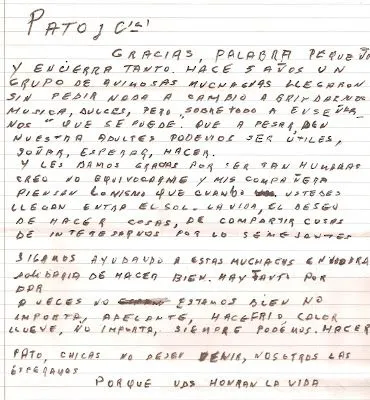 PATO y Cía:
GRACIAS, PALABRA PEQUEÑA
Y ENCIERRA TANTO. HACE 5 AÑOS UN
GRUPO DE ANIMOSAS MUCHACHAS LLEGARON
SIN PEDIR NADA A CAMBIO A BRINDARNOS
MUSICA, DULCES, PERO SOBRETODO A ENSEÑAR
NOS QUE SE PUEDE. QUE A PESAR DE
NUESTRA ADULTES PODEMOS SER ÚTILES,
SOÑAR, ESPERAR, HACER.
Y LES DAMOS GRACIAS POR SER TAN HUMANAS
CREO NO EQUIVOCARME Y MIS COMPAÑERA
PIENSAN LO MISMO QUE CUANDO USTEDES
LLEGAN ENTRA EL SOL. LA VIDA, EL DESEO
DE HACER COSAS, DE COMPARTIR COSAS
DE INTERESARNOS POR LO SEMEJANTES
SIGAMOS AYUDANDO A ESTAS MUCHACHAS EN
SOLIDARIA DE HACER BIEN. HAY TANTO POR
DAR
A VECES NO ESTAMOS BIEN NO
IMPORTA, ADELANTE, HACE FRIO, CALOR
LLUEVE, NO IMPORTA, SIEMPRE PODEMOS. HACER
PATO, CHICAS NO DEJEN DE VENIR, NOSOTROS LAS
ESPERAMOS
PORQUE UDS HONRAN LA VIDA